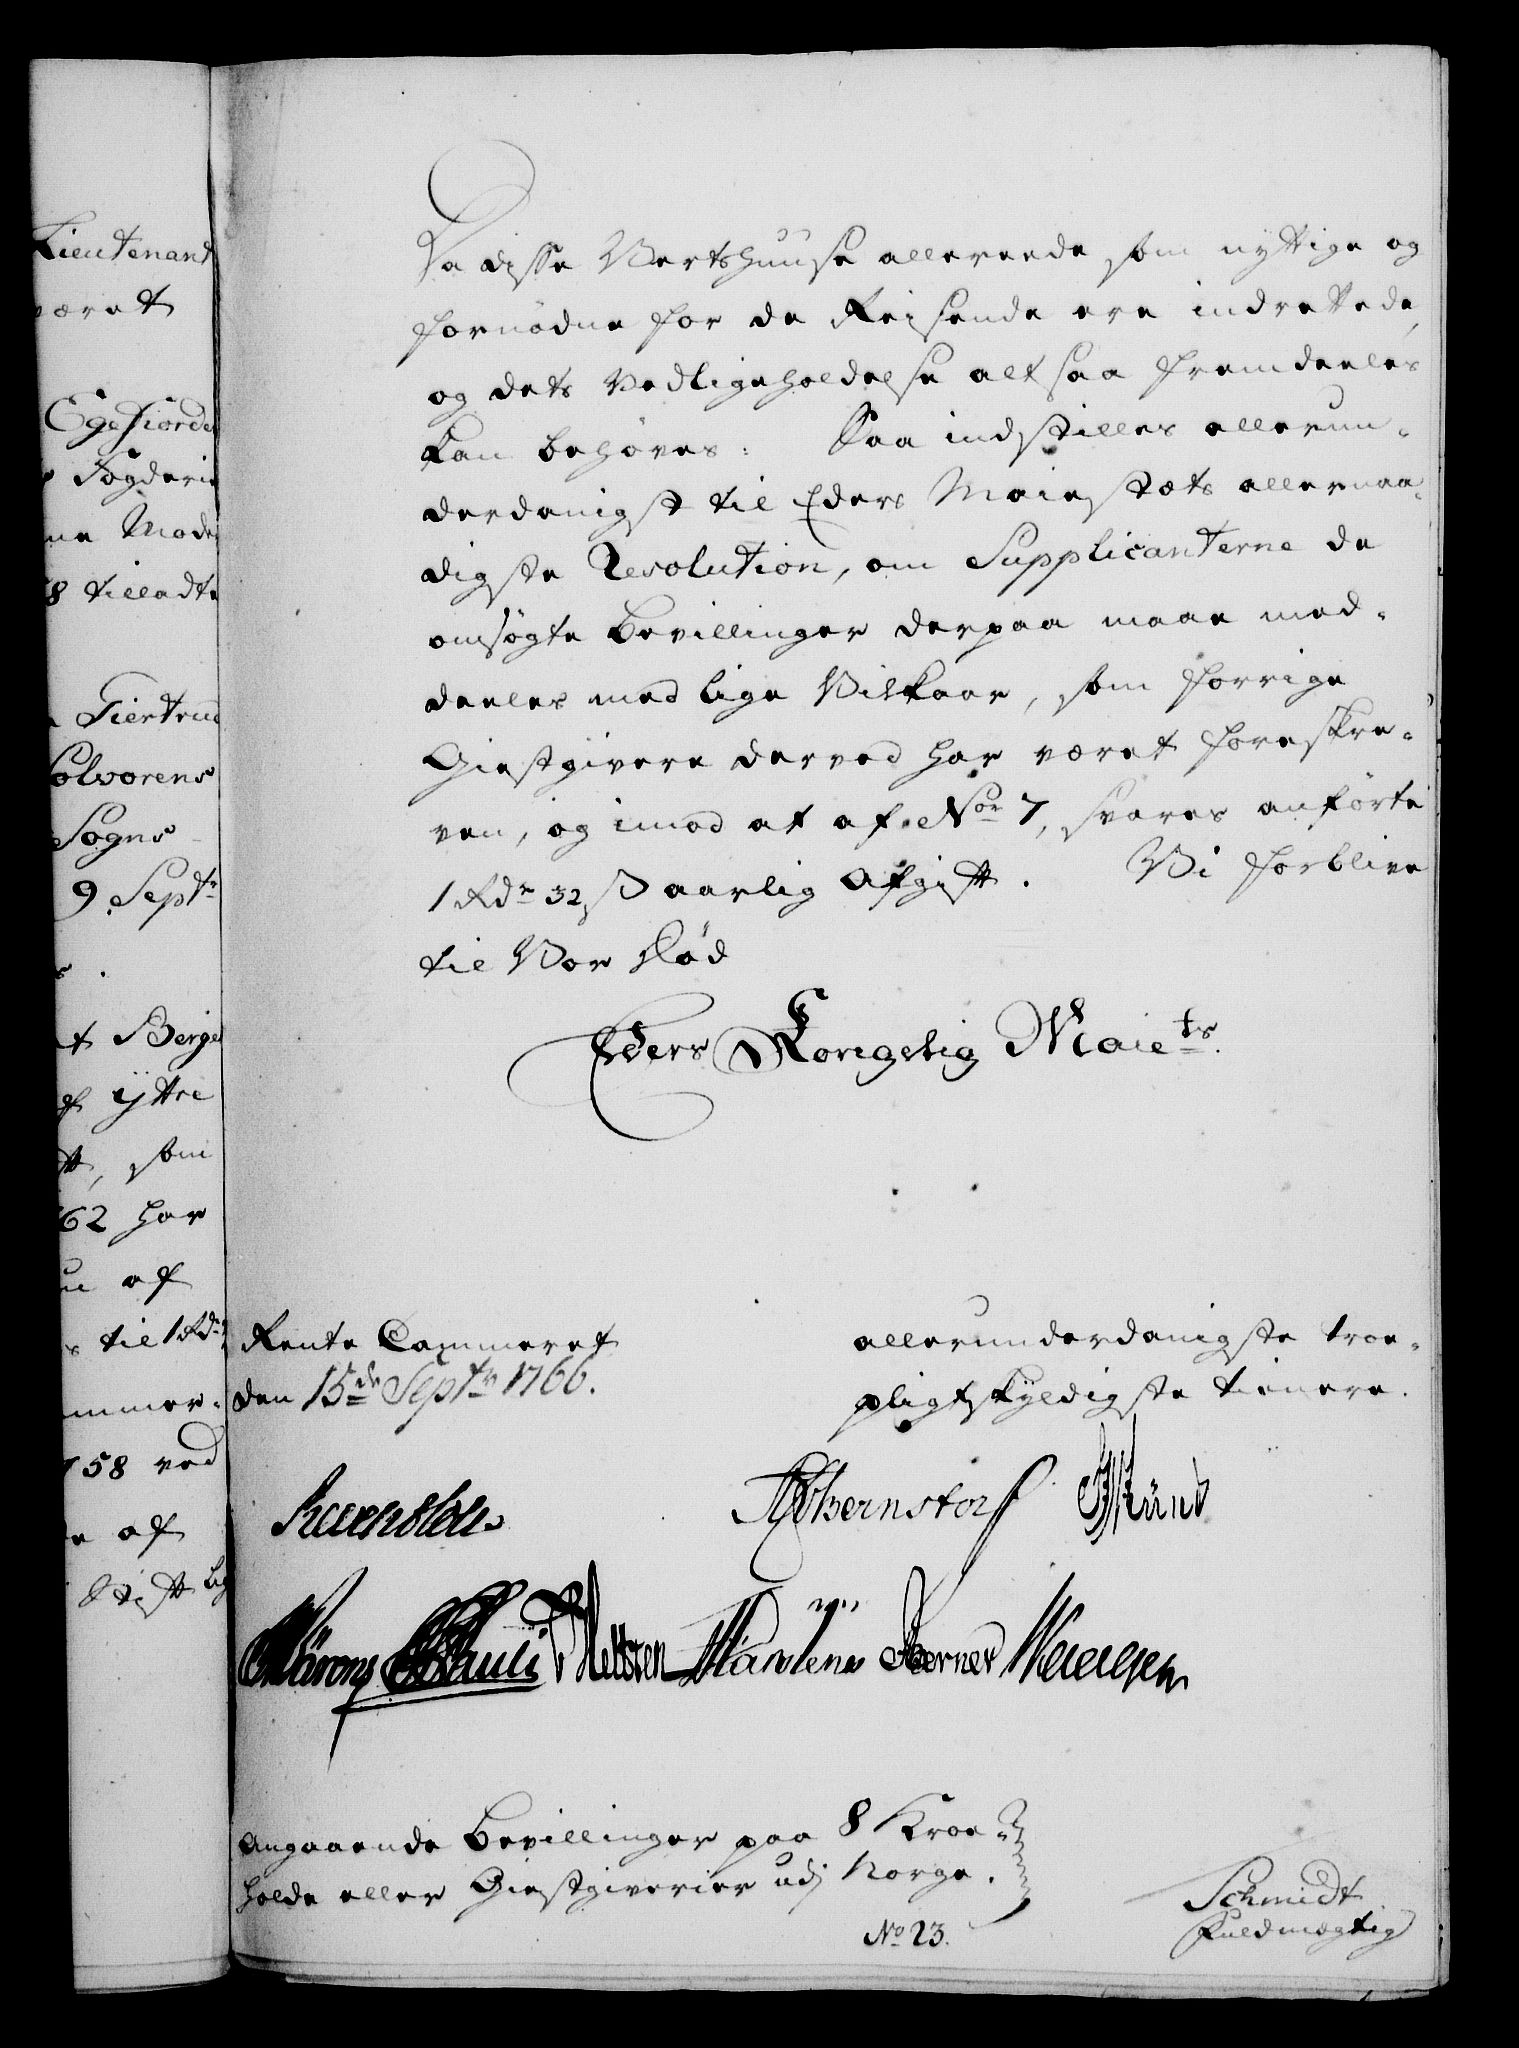 Lieutenant
været
Egefiorde
Fogderie
ne Mode
8 tilladte
Giertrud
Solvorens
Sogns
9 Septr
t Berge
af ÿttre
som
62 har
af
til 1 Rdr
ammer-
758 ved
af
Stift
Da disse Vertshuuse allereede som nyttige og
fornödne for de Reisende ere indrettede,
og dets Vedligeholdelse altsaa fremdeeles
kan behöves: Saa indstilles allerun-
derdanigst til Eders Maiestæts allernaa-
digste Resolution, om Supplicanterne de
omsögte Bevillinger derpaa maae med-
deeles med lige Vilkaar, som forrige
Giestgivere derved har været foreskre-
ven, og imod at af No 7, svares anförte
1 Rdr 32 ß aarlig Afgift. Vi forblive
til Vor Död
Eders Kongelig Maiets.
Rente Cammeret
den 15de Septr 1766.
allerunderdanigste troe-
pligtskÿldigste tienere.
Bernstorf
Pauli Berner
Angaaende Bevillinger paa 8 Kroe-
holde eller Giestgiverier udj Norge.
No 23.
Schmidt
Fuldmægtig